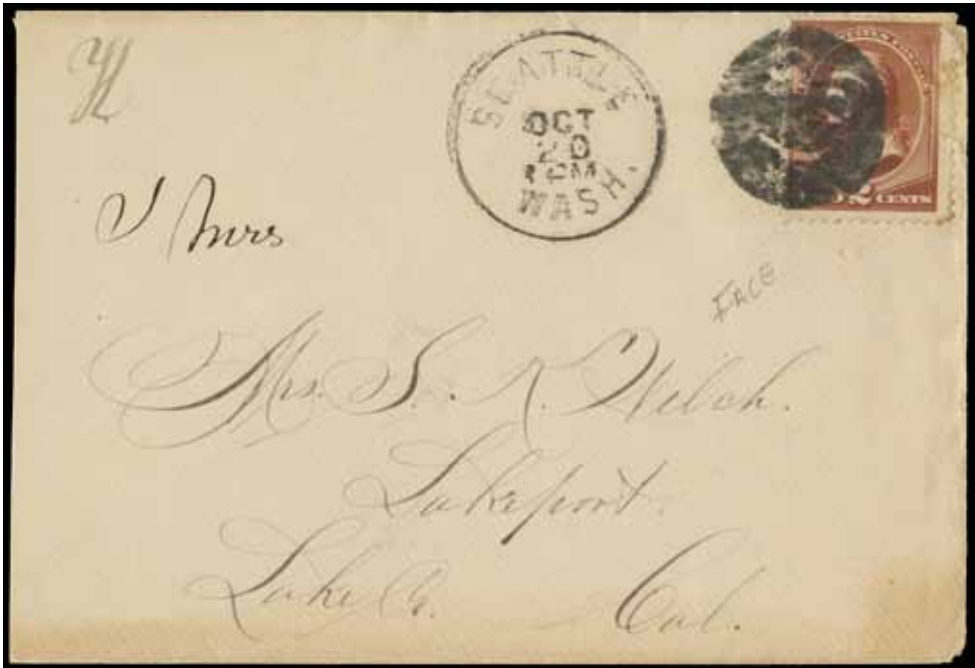 SEATTLE
OCT
20
1 PM
WASH.
2 CENTS
I Mrs
FACE
Mrs. S. K. Welch.
Lakeport.
Lake Co. Cal.